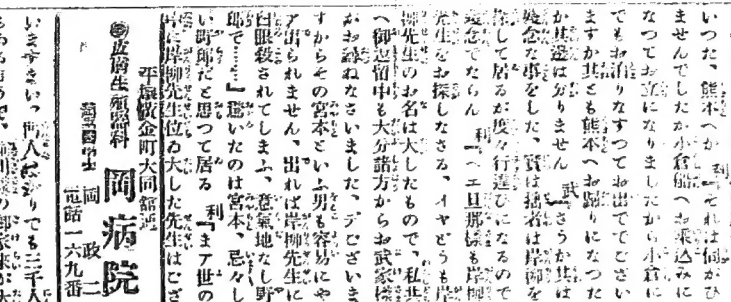 いつた、熊本へか 利『それは何がひ
ませんでしたか小倉船へお乘込みに
なつてお立になりましたから小倉に
でもお泊りなすつてお出ででござい
ますか其とも熊本へお歸りになつた
か其邊は分りません 武『さうか其は
殘念な事をした、實は拙者は岸柳を
探して居るが度々行違ひになるので
殘念でたらん 利『ヘエ旦那樣も岸柳
先生をお探しなさる、イヤどうも岸
柳先生のお名は大したもので、私共
へ御逗留中も大分諸方からお武家樣
がお尋ねなさいました、デございま
すからその宮本といふ男も容易にや
ア出られません、出れば岸柳先生に
白眼殺されてしまふ、意氣地なし野
郎で……』驚いたのは宮本、忌々し
い町郎だと思つて居る 利『マア世の
中に岸柳先生位ゐ大した先生はござ
平壤黄金町大同舘通
皮膚生殖器科 岡病院
岡政二
電話一六九番
いますまい、門人ばかりでも二千人